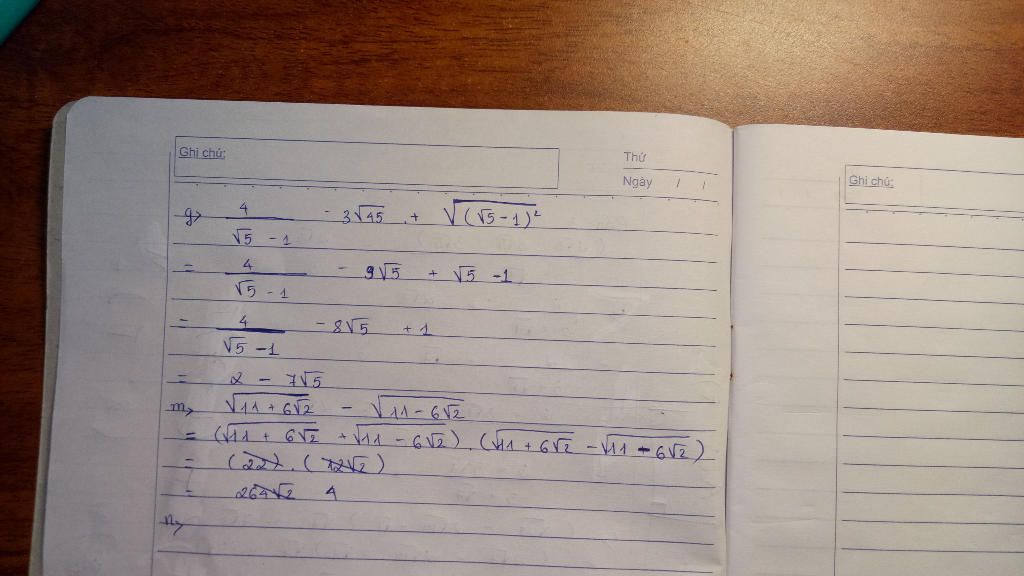 Ghi chú:
Thứ
Ngày / /
Ghi chú:
g> 4/(√5 - 1) - 3√45 + √((√5-1)²)
= 4/(√5 - 1) - 9√5 + √5 -1
= 4/(√5 -1) - 8√5 + 1
= 2 - 7√5
m> √(11 + 6√2) - √(11 - 6√2)
= (√(11 + 6√2) + √(11 - 6√2)) . (√(11 + 6√2) - √(11 - 6√2))
= (22) . (12√2)
= 264√2 4
n>